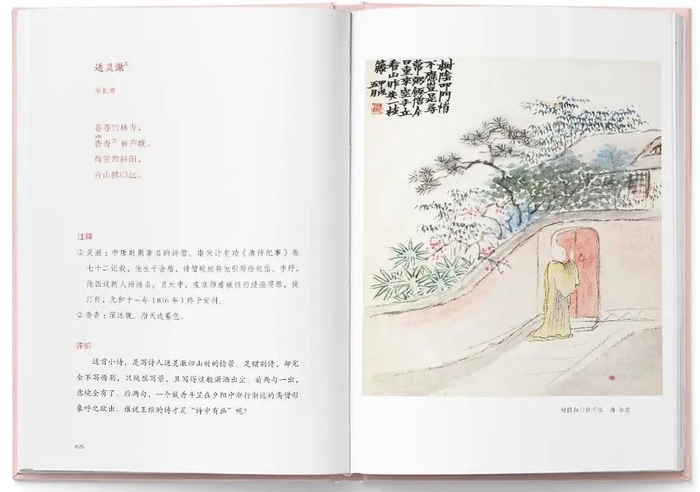 送灵澈①
刘长卿
苍苍竹林寺，
杳杳②钟声晚。
荷笠带斜阳，
青山独归远。
注释
①灵澈：中唐时期著名的诗僧。南宋计有功《唐诗纪事》卷
七十二记载，他生于会稽，诗僧皎然将他引荐给包佶、李纾，
他因这两人而扬名。贞元中，在京师遭嫉恨而
汀州，元和十一年（816年）终于宣州。
②杳杳：深远貌。指天边暮色。
评析
这首小诗，是写诗人送灵澈归山时的情景。是赠别诗，却完
全不写惜别，只纯然写景，且写得这般潇洒出尘。前两句一出，
意境全有了。后两句，一个披着斗笠在夕阳中渐行渐远的高僧形
象呼之欲出。谁说王维的诗才是“诗中有画”呢？
树阴叩门悄
不应岂是寻
常粥饭僧今
日重来空手立
看山昨失一枝
藤
清 金农